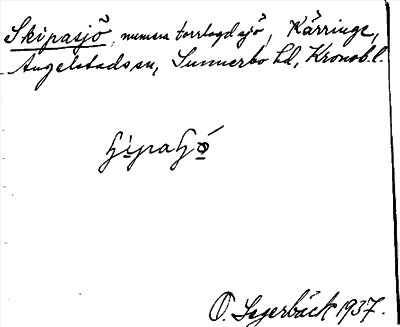 Skipasjö, numera torrlagd sjö, Kärringe,
Angelstads sn, Sunnerbo hd, Kronob. l.
O. Sagerbäck 1937.